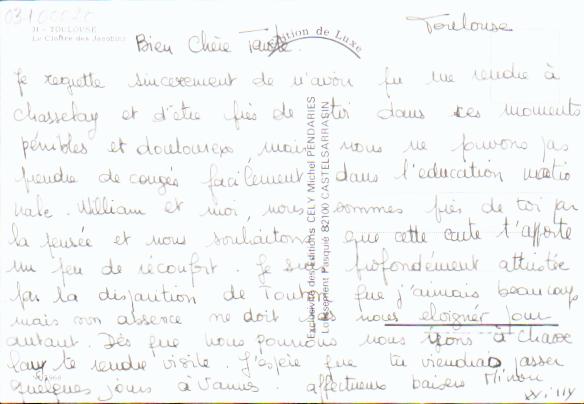 03100020
31 - TOULOUSE
Le Cloître des Jacobins
Edition de Luxe
Toulouse
Bien Chère Tante.
Je regrette sincerement de n'avoir pu me rendre à
Chasselay et d'être près de toi dans ces moments
pénibles et douloureux mais nous ne pouvons pas
prendre de congés facilement dans l'education natio
nale. William et moi, nous sommes près de toi par
la pensée et nous souhaitons que cette carte t'apporte
un peu de réconfort. Je suis profondément attristée
par la disparition de Tonton que j'aimais beaucoup
mais son absence ne doit pas nous eloigner pour
autant. Dès que nous pourrons nous irons à Chasse
lay te rendre visite. J'espère que tu viendras passer
quelques jours à Vannes. affectueux baisers Minou
Willy
Exclusivité des éditions CELY Michel PENDARIES
Lotissement Pasquié 82100 CASTELSARRASIN